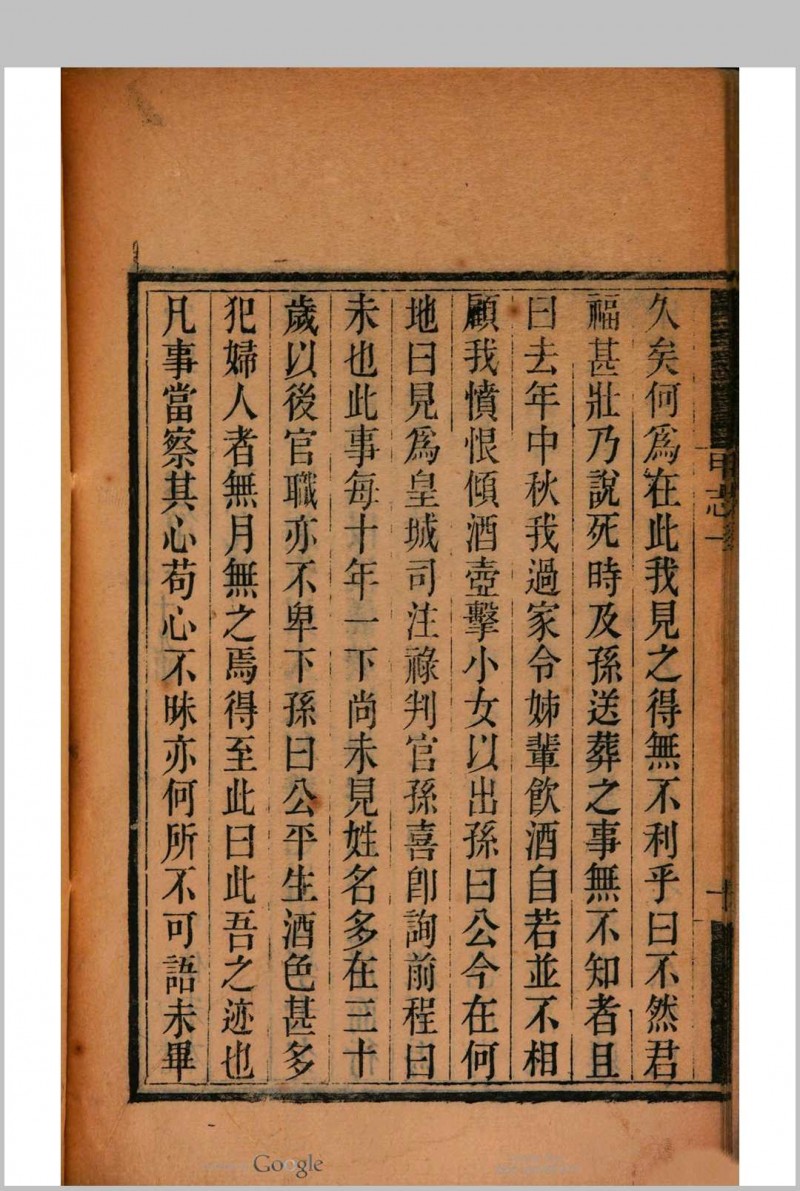 久矣何爲在此我見之得無不利乎曰不然君
福甚壯乃說死時及孫送葬之事無不知者且
曰去年中秋我過家令姊輩飲酒自若並不相
顧我憤恨傾酒壺擊小女以出孫曰公今在何
地曰見爲皇城司注祿判官孫喜卽詢前程曰
未也此事每十年一下尚未見姓名多在三十
歲以後官職亦不卑下孫曰公平生酒色甚多
犯婦人者無月無之焉得至此曰此吾之迹也
凡事當察其心苟心不昧亦何所不可語未畢
甲志一
十
Google